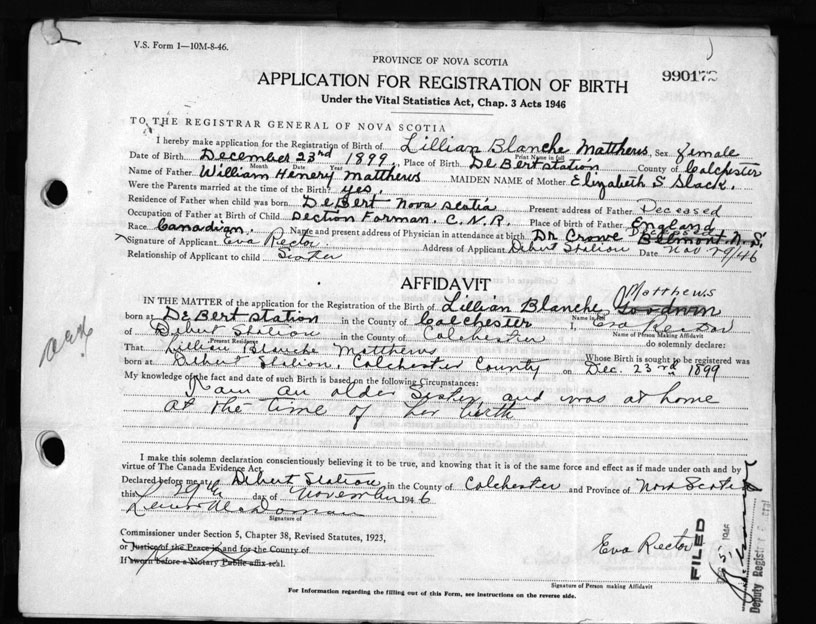 V.S. Form 1—10M-8-46.
PROVINCE OF NOVA SCOTIA
990172
APPLICATION FOR REGISTRATION OF BIRTH
Under the Vital Statistics Act, Chap. 3 Acts 1946
TO THE REGISTRAR GENERAL OF NOVA SCOTIA
I hereby make application for the Registration of Birth of Lillian Blanche Matthews, Sex female
Print Name in full
Date of Birth December 23rd 1899, Place of Birth DeBert station County of Colchester
Month Date Year
Name of Father William Henery Matthews MAIDEN NAME of Mother Elizabeth S Slack.
Were the Parents married at the time of the Birth? yes.
Residence of Father when child was born DeBert Nova Scatia Present address of Father Deceased
Occupation of Father at Birth of Child Section Forman. C.N.R. Place of birth of Father England
Race Canadian. Name and present address of Physician in attendance at birth Dr Crowe Deceased Belmont N.S.
Signature of Applicant Eva Rector. Address of Applicant Debert Station Date Nov 29/46
Relationship of Applicant to child Sister
AFFIDAVIT
Matthews
IN THE MATTER of the application for the Registration of the Birth of Lillian Blanche Goodwin
born at DeBert station in the County of Colchester I, Eva Rector
Name in full
of Debert Station in the County of Colchester
Name of Person Making Affidavit
Present Residence
do solemnly declare:
That Lillian Blanche Matthews Whose Birth is sought to be registered was
born at Debert Station, Colchester County on Dec. 23rd 1899
My knowledge of the fact and date of such Birth is based on the following Circumstances:
I am an older sister, and was at home
at the time of her birth
I make this solemn declaration conscientiously believing it to be true, and knowing that it is of the same force and effect as if made under oath and by
virtue of The Canada Evidence Act.
Declared before me at Debert Station in the County of Colchester and Province of Nova Scotia
this 29th day of November 1946
Signature of
Commissioner under Section 5, Chapter 38, Revised Statutes, 1923,
or Justice of the Peace in and for the County of
If sworn before a Notary Public affix seal.
Eva Rector
Signature of Person making Affidavit
For Information regarding the filling out of this Form, see instructions on the reverse side.
FILED
1946
Deputy Registrar General